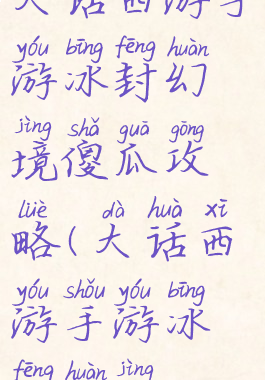 大话西游手
yóu bīng fēng huàn
游冰封幻
jìng shǎ guā gōng
境傻瓜攻
lüè dà huà xī
略(大话西
yóu shǒu yóu bīng
游手游冰
fēng huàn jìng